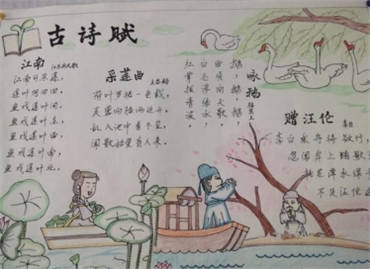 古诗赋
江南
江南可采莲,
莲叶何田田。
鱼戏莲叶间,
鱼戏莲叶东,
鱼戏莲叶西,
鱼戏莲叶南,
鱼戏莲叶北。
采莲曲 王昌龄
荷叶罗裙一色裁,
芙蓉向脸两边开。
乱入池中看不见,
闻歌始觉有人来。
咏鹅 骆宾王
鹅,鹅,鹅,
曲项向天歌。
白毛浮绿水,
红掌拨清波。
赠汪伦
李白乘舟将欲行,
忽闻岸上踏歌
桃花潭水深
不及汪伦